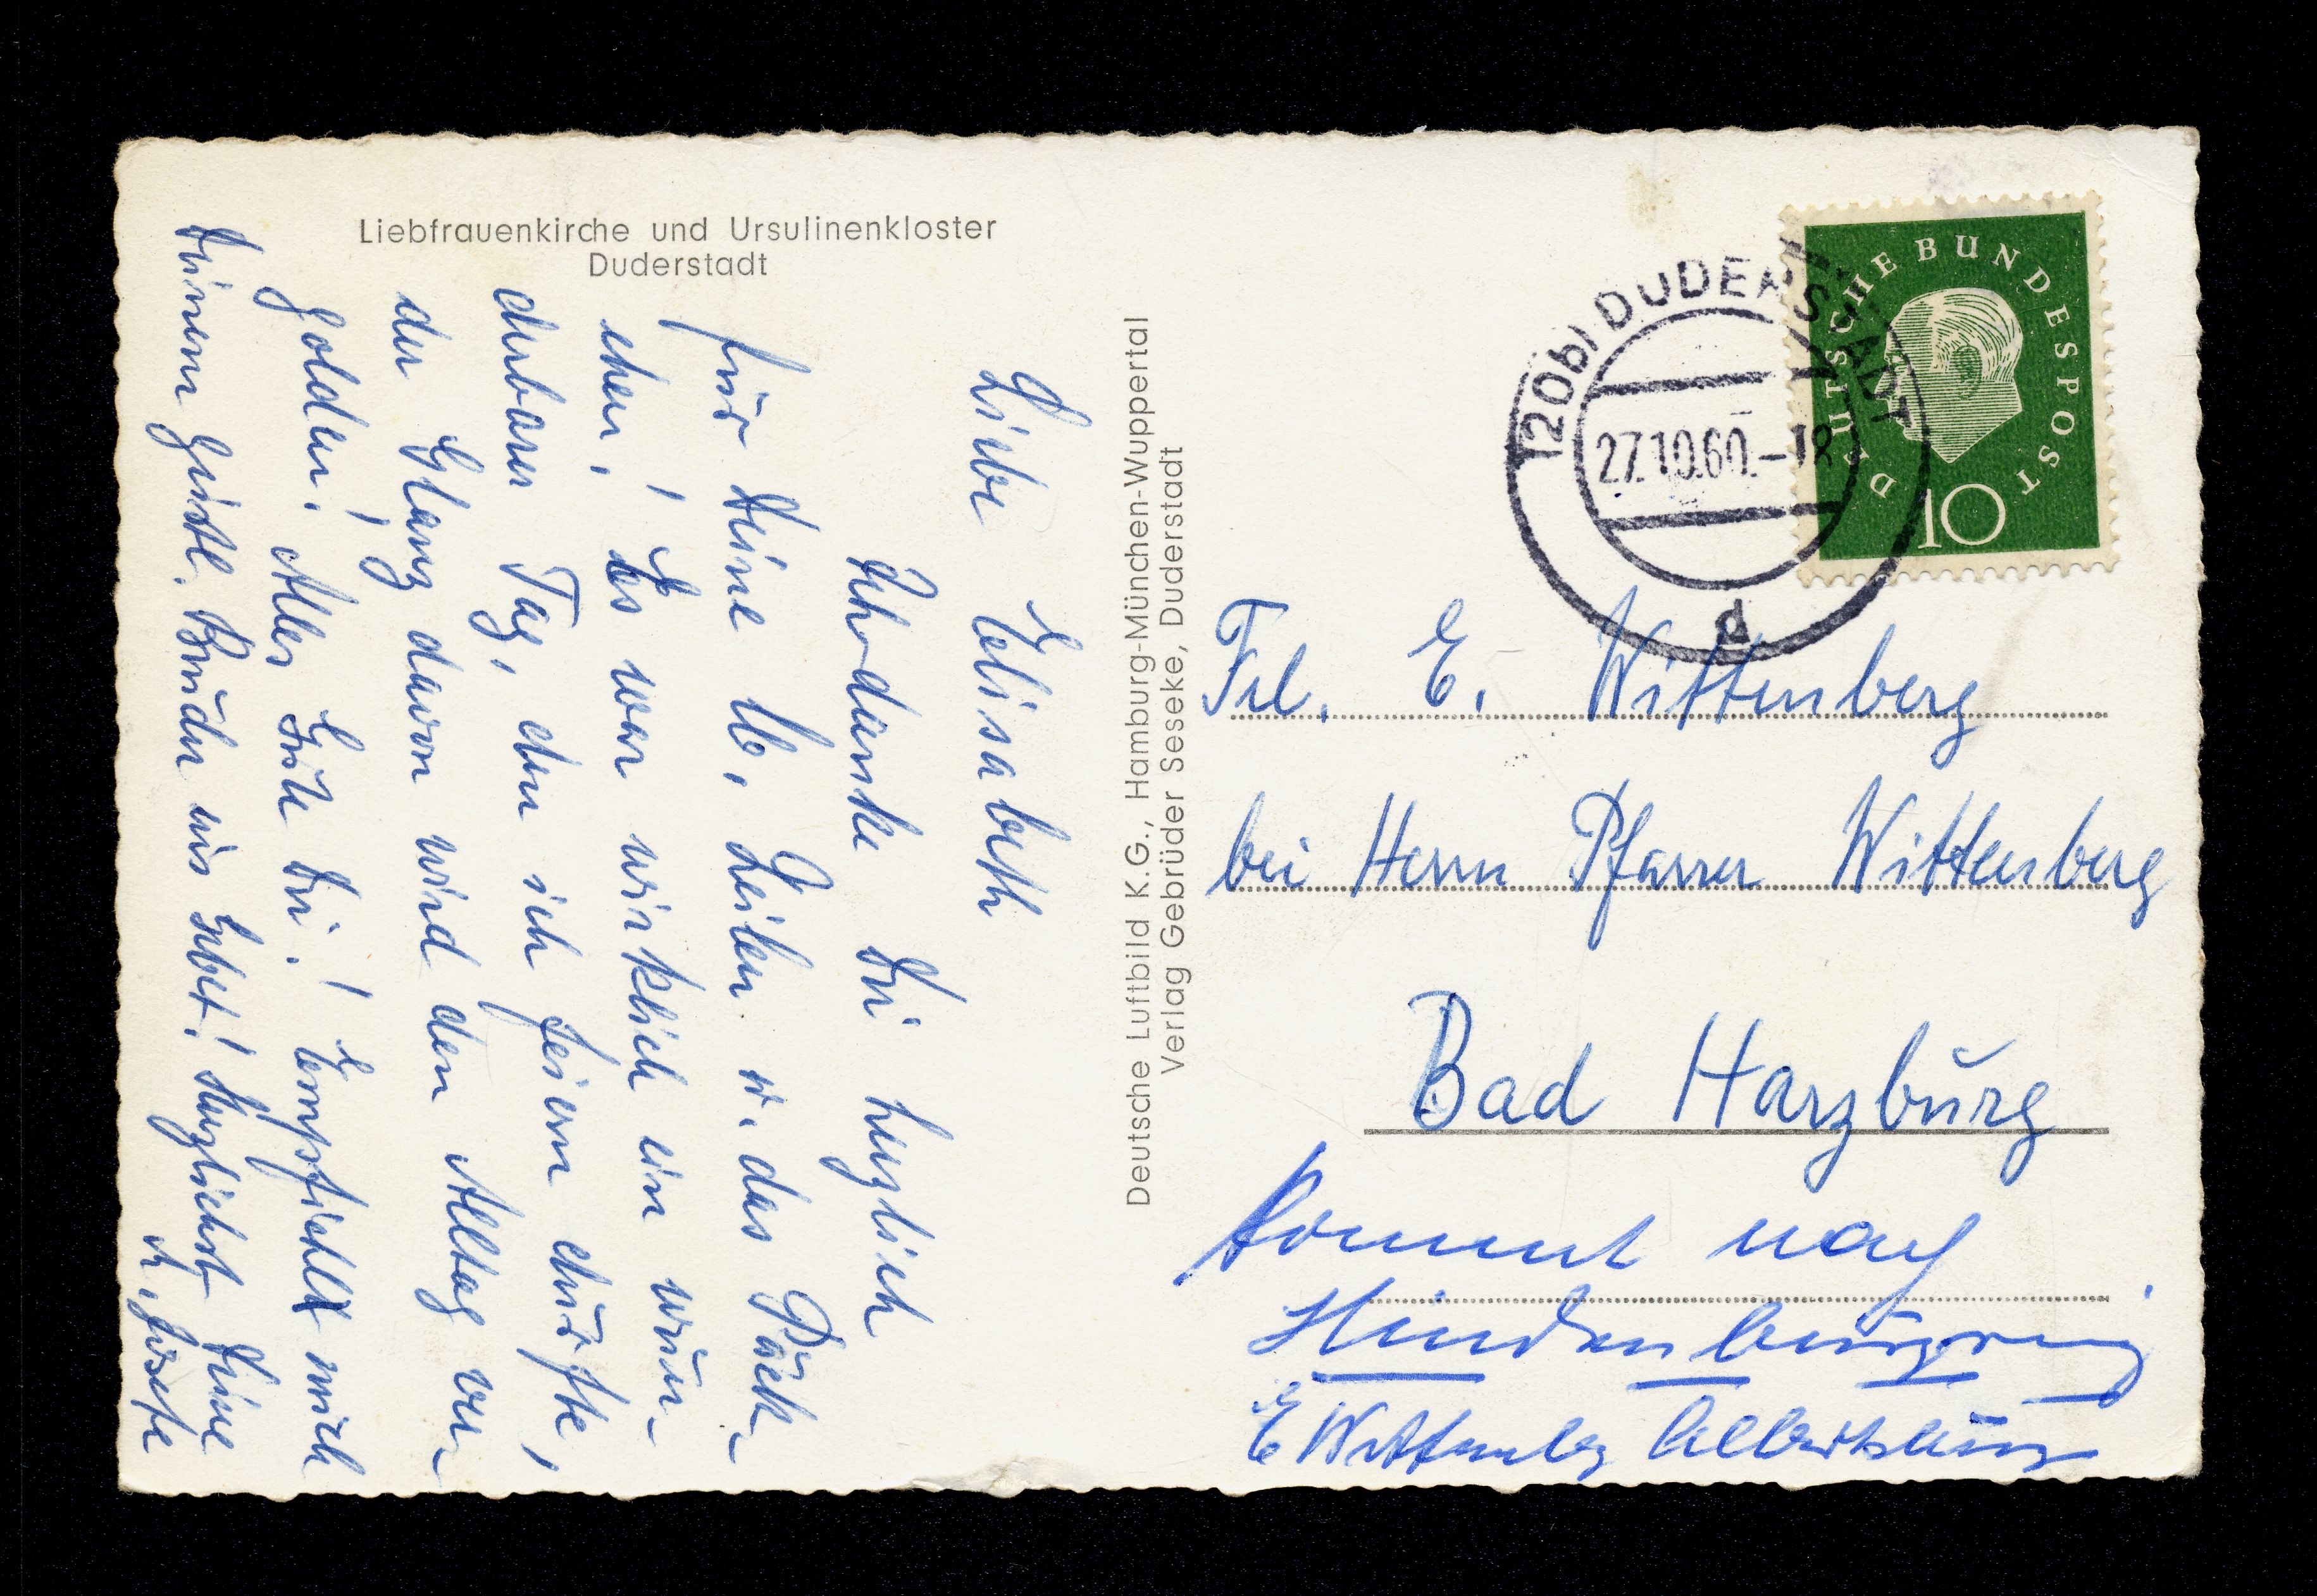 Liebfrauenkirche und Ursulinenkloster
Duderstadt
Liebe Elisabeth
Ich danke Dir herzlich
für Deine lb. Zeilen u. das Päck-
chen! Es war wirklich ein wun-
derbarer Tag, den ich feiern durfte,
der Glanz davon wird den Alltag ver-
golden! Alles Gute Dir! Empfiehl mich
Deinem geistl. Bruder ins Gebet! Herzlichst Deine
M. 
Deutsche Luftbild K.G., Hamburg-München-Wuppertal
Verlag Gebrüder Seseke, Duderstadt
(20b) DUDERSTADT
27.10.60.-18
d
DEUTSCHE BUNDESPOST
10
Frl. E. Wittenberg
bei Herrn Pfarrer Wittenberg
Bad Harzburg
kommt nach
Hindenburgring
E Wittenberg